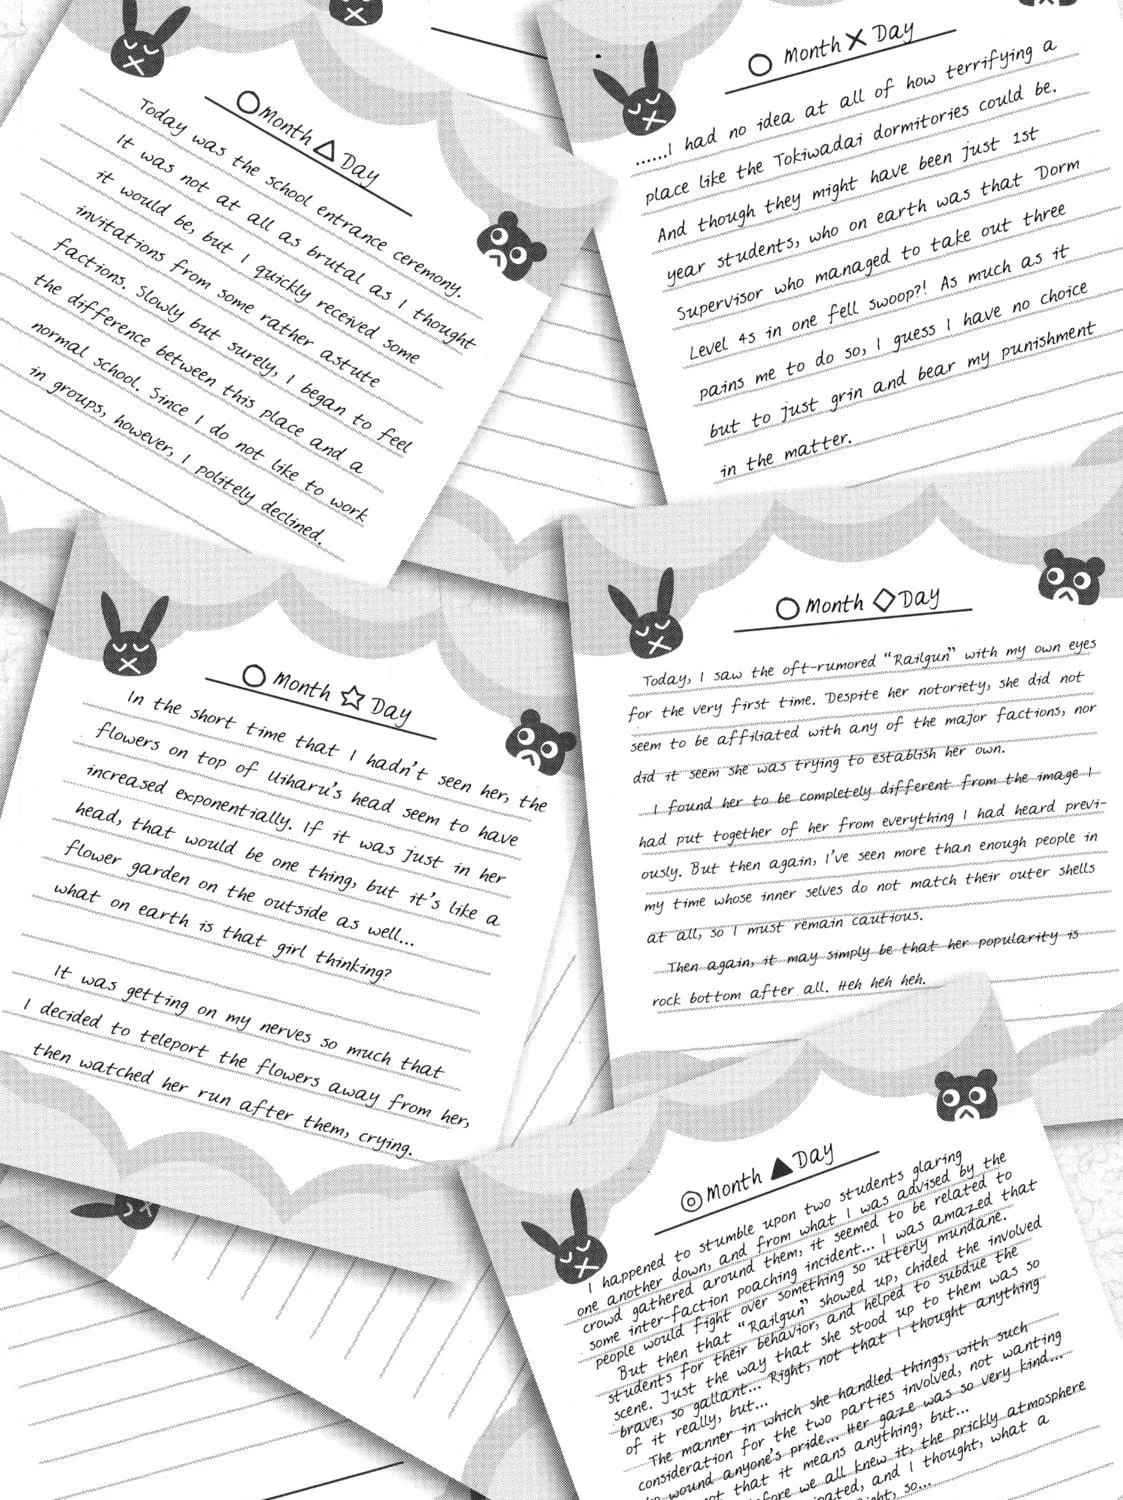 ○ Month △ Day
Today was the school entrance ceremony.
It was not at all as brutal as I thought
it would be, but I quickly received some
invitations from some rather astute
factions. Slowly but surely, I began to feel
the difference between this place and a
normal school. Since I do not like to work
in groups, however, I politely declined.
○ Month ✕ Day
......I had no idea at all of how terrifying a
place like the Tokiwadai dormitories could be.
And though they might have been just 1st
year students, who on earth was that Dorm
Supervisor who managed to take out three
Level 4s in one fell swoop?! As much as it
pains me to do so, I guess I have no choice
but to just grin and bear my punishment
in the matter.
○ Month ☆ Day
In the short time that I hadn't seen her, the
flowers on top of Uiharu's head seem to have
increased exponentially. If it was just in her
head, that would be one thing, but it's like a
flower garden on the outside as well...
what on earth is that girl thinking?
It was getting on my nerves so much that
I decided to teleport the flowers away from her,
then watched her run after them, crying.
○ Month ◇ Day
Today, I saw the oft-rumored "Railgun" with my own eyes
for the very first time. Despite her notoriety, she did not
seem to be affiliated with any of the major factions, nor
did it seem she was trying to establish her own.
I found her to be completely different from the image I
had put together of her from everything I had heard previ-
ously. But then again, I've seen more than enough people in
my time whose inner selves do not match their outer shells
at all, so I must remain cautious.
Then again, it may simply be that her popularity is
rock bottom after all. Heh heh heh.
◎ Month ▲ Day
I happened to stumble upon two students glaring
one another down, and from what I was advised by the
crowd gathered around them, it seemed to be related to
some inter-faction poaching incident... I was amazed that
people would fight over something so utterly mundane.
But then that "Railgun" showed up, chided the involved
students for their behavior, and helped to subdue the
scene. Just the way that she stood up to them was so
brave, so gallant... Right, not that I thought anything
of it really, but...
The manner in which she handled things, with such
consideration for the two parties involved, not wanting
to wound anyone's pride... Her gaze was so very kind...
not that it means anything, but...
before we all knew it, the prickly atmosphere
and I thought, what a
so...